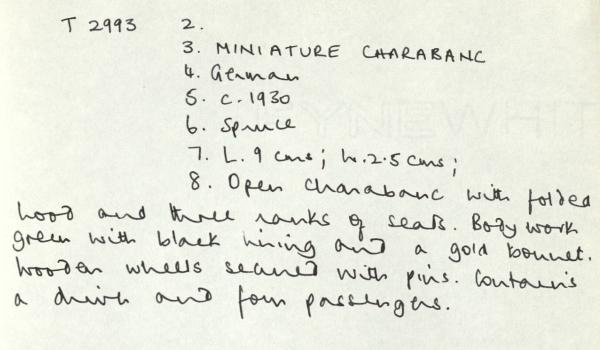 T 2993 2.
3. MINIATURE CHARABANC
4. German
5. c. 1930
6. Spruce
7. L. 9 cms; h. 2.5 cms;
8. Open charabanc with folded
hood and three ranks of seats. Body work
green with black lining and a gold bonnet.
Wooden wheels secured with pins. Contains
a driver and four passengers.